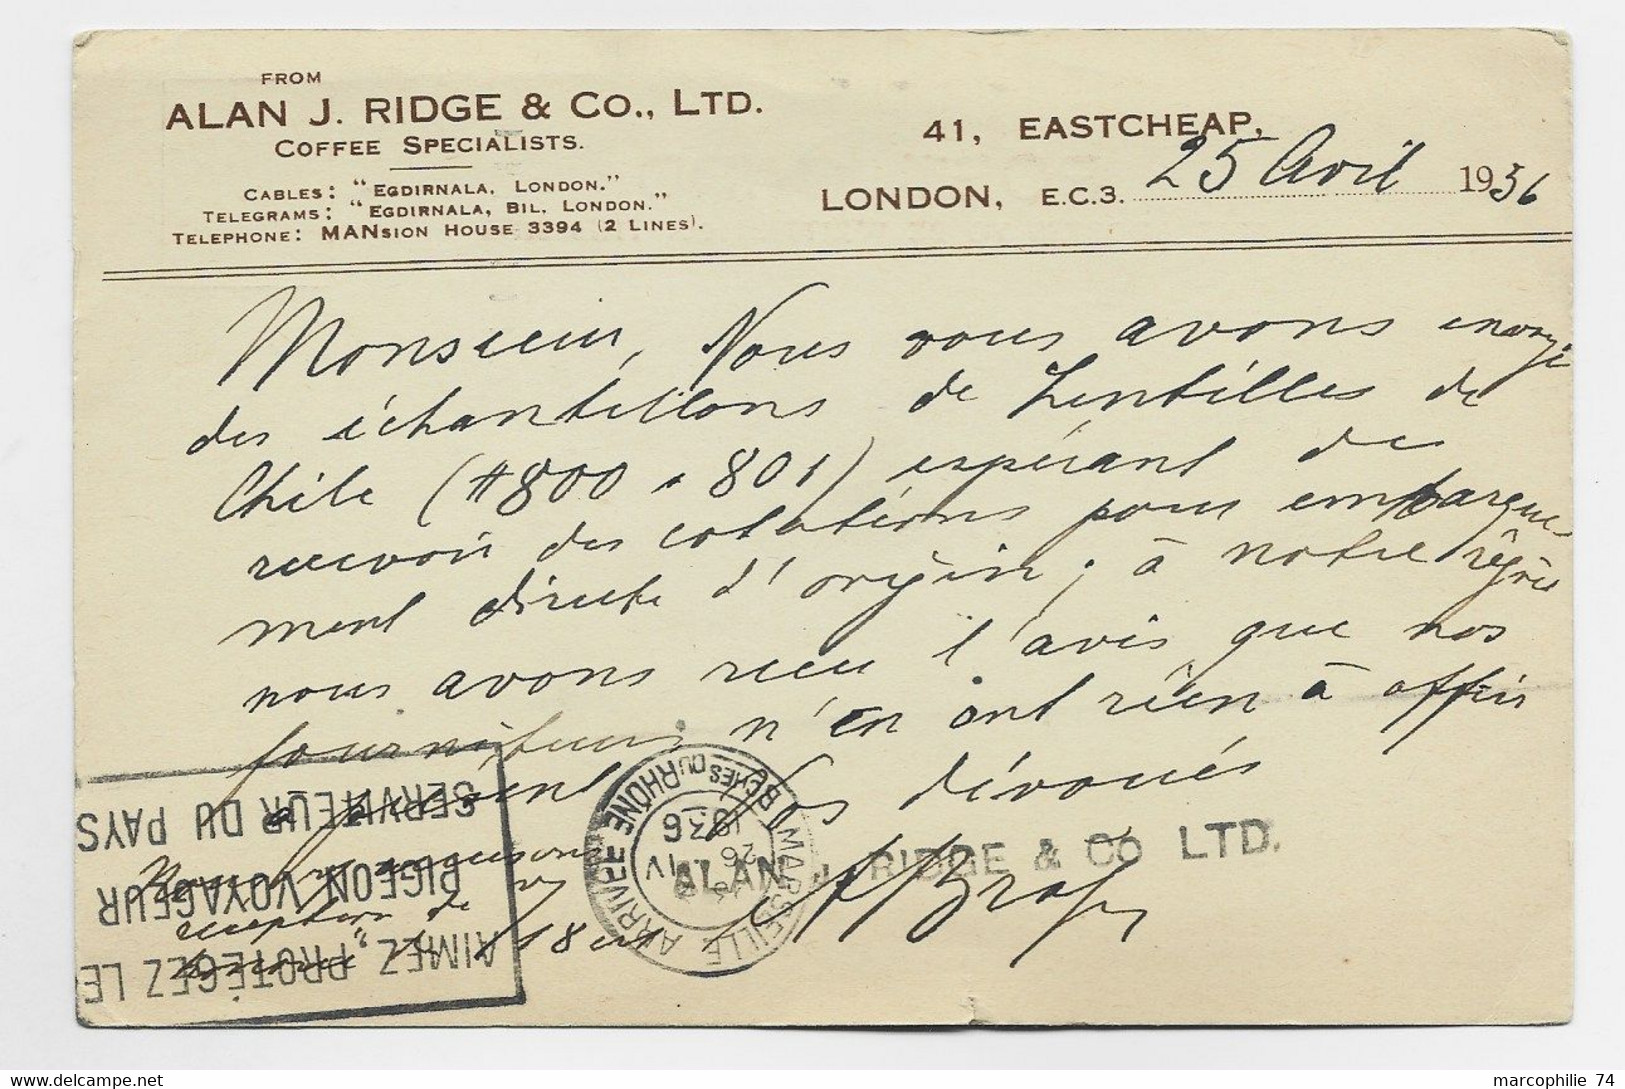 FROM
ALAN J. RIDGE & Co., LTD.
COFFEE SPECIALISTS.
CABLES: "EGDIRNALA, LONDON."
TELEGRAMS: "EGDIRNALA, BIL, LONDON."
TELEPHONE: MANSION HOUSE 3394 (2 LINES).
41, EASTCHEAP,
LONDON, E.C.3. 25 Avril 1936
Monsieur, Nous vous avons envoyé
des échantillons de Lentilles de
Chile (#800 & 801) espérant de
recevoir des cotations pour embarque-
ment directe d'origin; à notre régret
nous avons reçu l'avis que nos
fourniteurs n'en ont rien à offrir
à présent Vos dévoués
ALAN J. RIDGE & Co LTD.
Nous vous accusons
reception de vs
18 ct
MARSEILLE ARRIVÉE
BCHES DU RHÔNE
26 IV
1936
AIMEZ, PROTÉGEZ LE
PIGEON VOYAGEUR
SERVITEUR DU PAYS
marcophilie 74